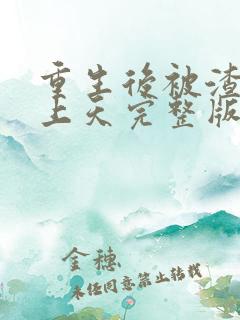 重生后被渣
上天完整版
金穗
未经同意禁止转载